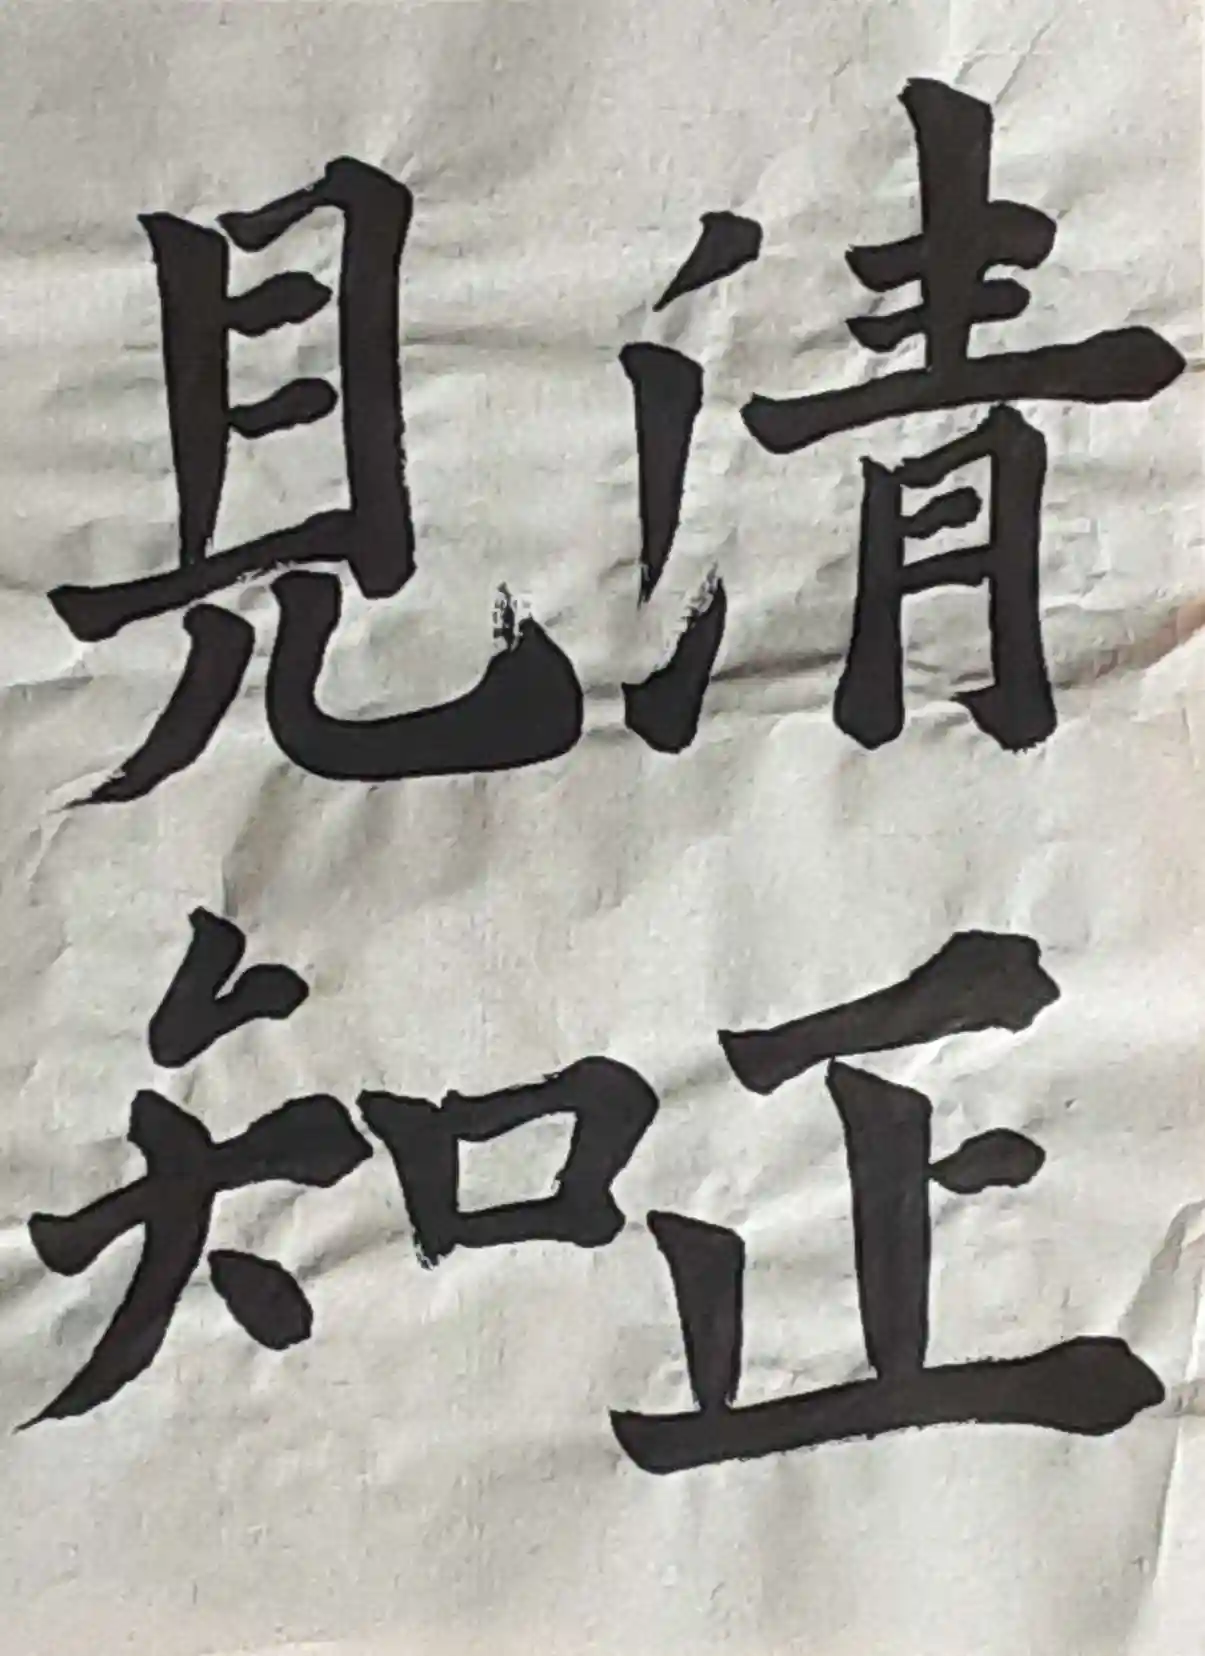 清正
見知